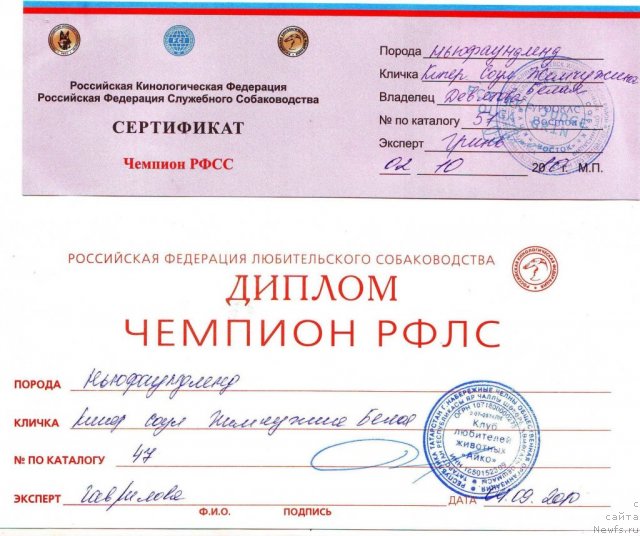 Российская Кинологическая Федерация
Российская Федерация Служебного Собаководства
СЕРТИФИКАТ
Чемпион РФСС
Порода ньюфаундленд
Кличка Кипер Соул Жемчужина Белая
Владелец
№ по каталогу 57
Эксперт Гринь
02 10 2010 г. М.П.
РОССИЙСКАЯ ФЕДЕРАЦИЯ ЛЮБИТЕЛЬСКОГО СОБАКОВОДСТВА
ДИПЛОМ
ЧЕМПИОН РФЛС
ПОРОДА Ньюфаундленд
КЛИЧКА Кипер Соул Жемчужина Белая
№ ПО КАТАЛОГУ 47
Клуб
любителей
животных
"Айко"
ЭКСПЕРТ Гаврилова ДАТА 04.09.2010
Ф.И.О. ПОДПИСЬ
с
сайта
Newfs.ru